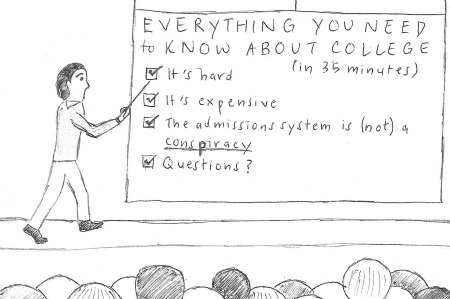 EVERYTHING YOU NEED
to KNOW ABOUT COLLEGE
(in 35 minutes)
It's hard
It's expensive
The admissions system is (not) a
conspiracy
Questions?